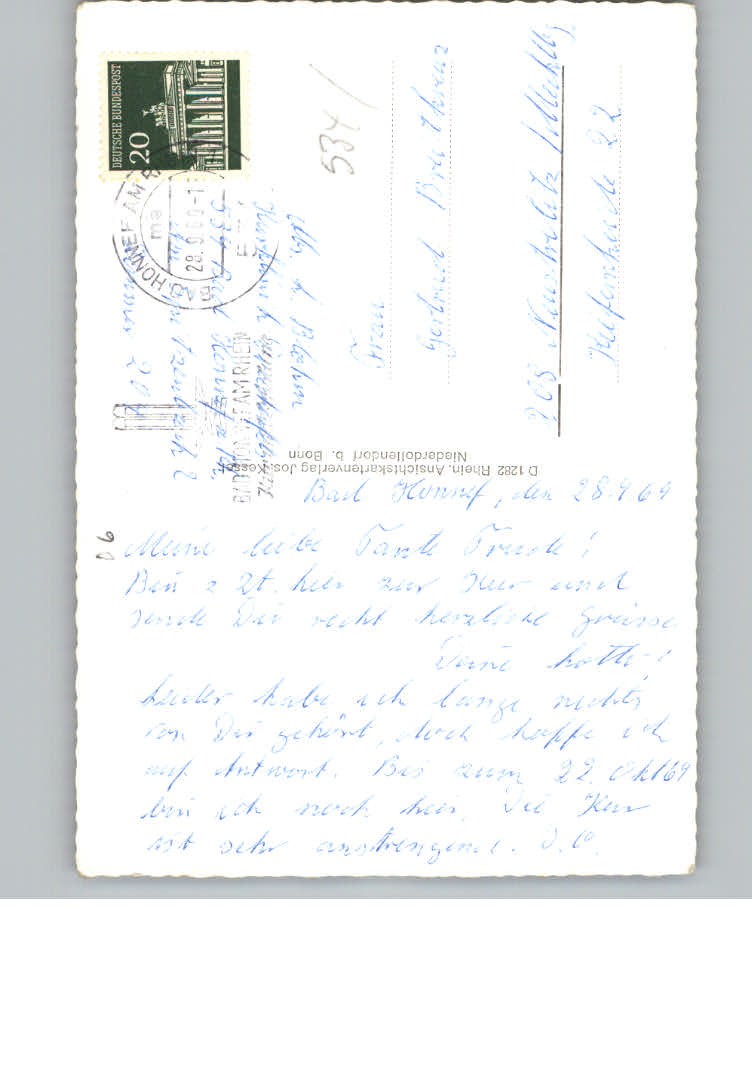 Bad Honnef, den 28.9.69
Meine liebe Tante Trude!
Bin z Zt. hier zur Kur und
sende Dir recht herzliche Grüsse
Deine Lotte!
Leider habe ich lange nichts
von Dir gehört, doch hoffe ich
auf Antwort. Bis zum 22. Okt 69
bin ich noch hier. Die Kur
ist sehr anstrengend. D. O.
D 1282 Rhein. Ansichtskartenverlag Jos. Kessel
Niederdollendorf b. Bonn
DEUTSCHE BUNDESPOST
20
BAD HONNEF AM RHEIN
28.9.69-1
ma
BAD HONNEF AM RHEIN
534
Abs. L. Blohm
534 Bad Honnef a. Rh.
Zimmer 204
Frau
Gertrud
Neustrelitz / Mecklbg.
22
D 6